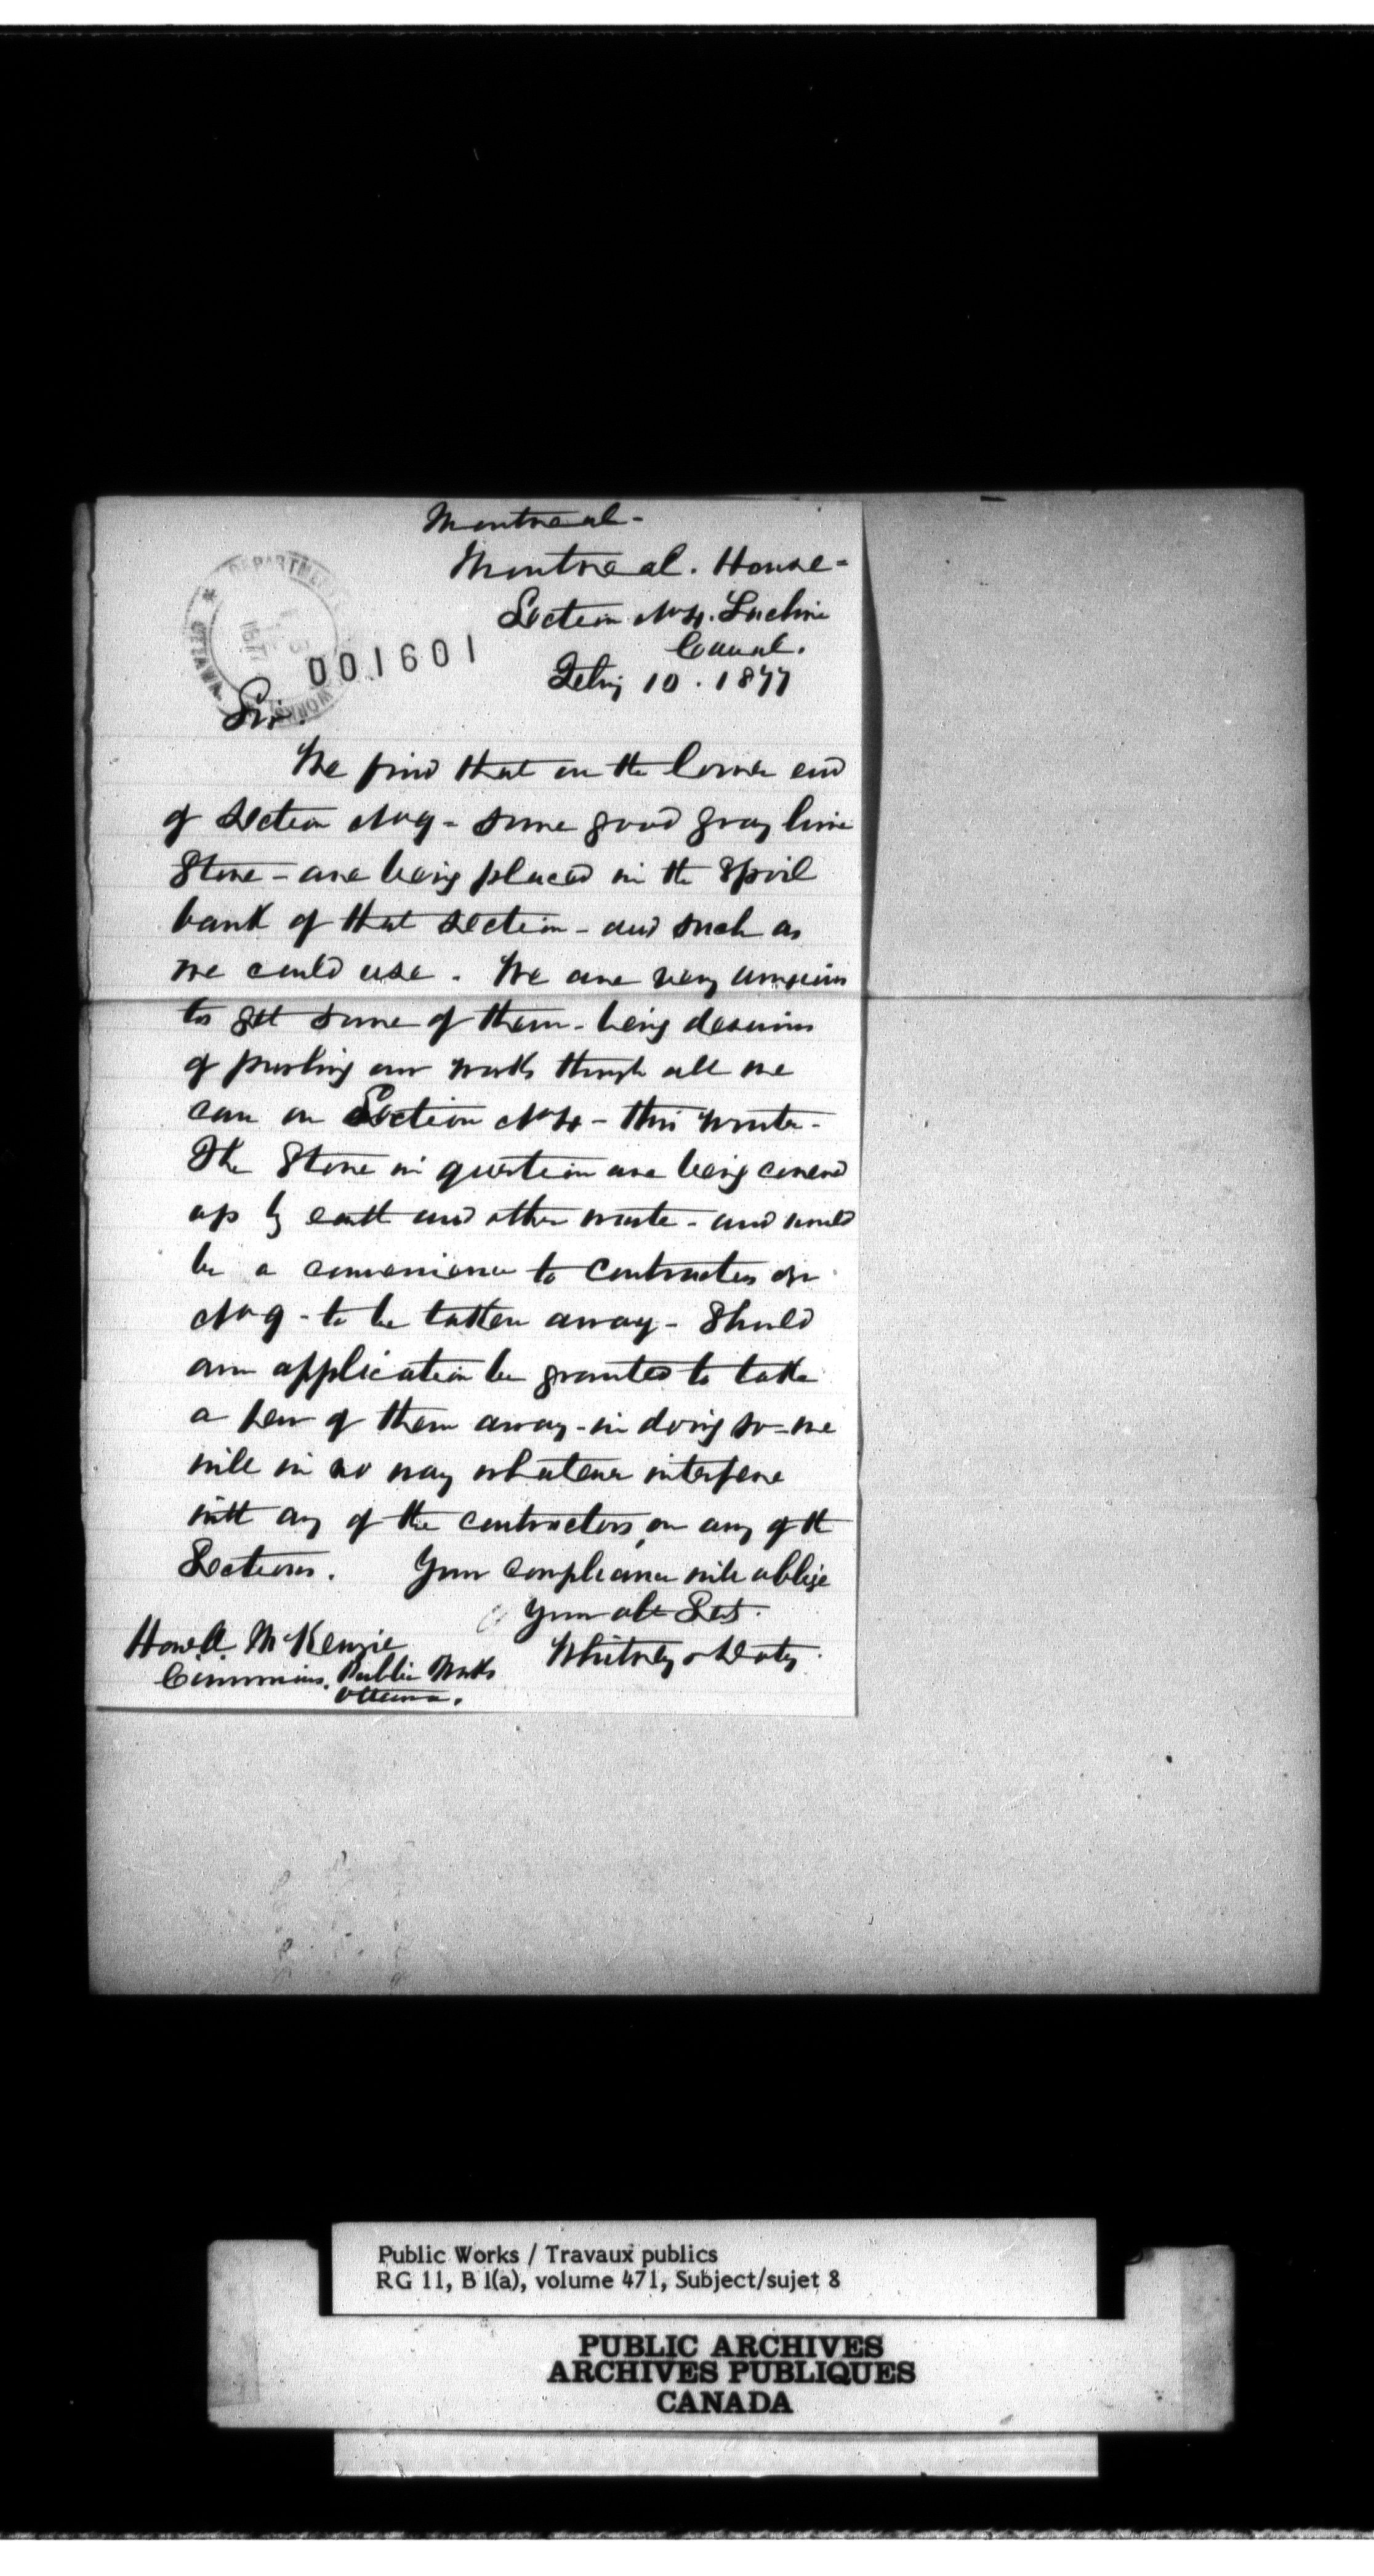 Montreal -
Montreal. House -
Section No 4. Lachine
Canal.
Feby 10. 1877
DEPARTMENT
WORKS
OTTAWA
1877
001601
Sir.
We find that on the lower end
of Section No 9 - some good gray lime
Stone - are being placed in the Spoil
bank of that section - and such as
we could use. We are very anxious
to get some of them - being desirous
of pushing our works through all we
can on Section No 4 - this winter -
The Stone in question are being covered
up by earth and other waste - and would
be a convenience to Contractors on
No 9 - to be taken away - Should
our application be granted to take
a few of them away - in doing so - we
will in no way whatever interfere
with any of the contractors, on any of the
Sections. Your compliance will oblige
Your obt Svt.
Whitney & Doty.
McKenzie
Public Works
Ottawa.
Public Works / Travaux publics
RG 11, B 1(a), volume 471, Subject/sujet 8
PUBLIC ARCHIVES
ARCHIVES PUBLIQUES
CANADA